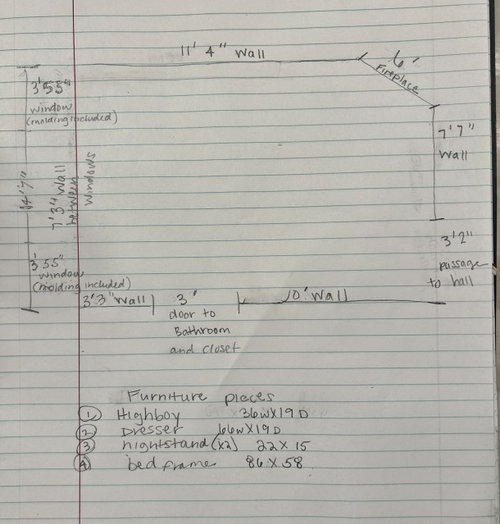 11' 4" Wall
6'
Fireplace
3'55"
window
(molding included)
7'7"
Wall
14'7"
7'3" Wall
between
Windows
3'2"
passage
to hall
3'55"
window
(molding included)
3'3" Wall
3'
10' Wall
door to
Bathroom
and closet
Furniture pieces
① Highboy 36WX19D
② Dresser 66WX19D
③ nightstand (x2) 22X15
④ bed frame 86X58